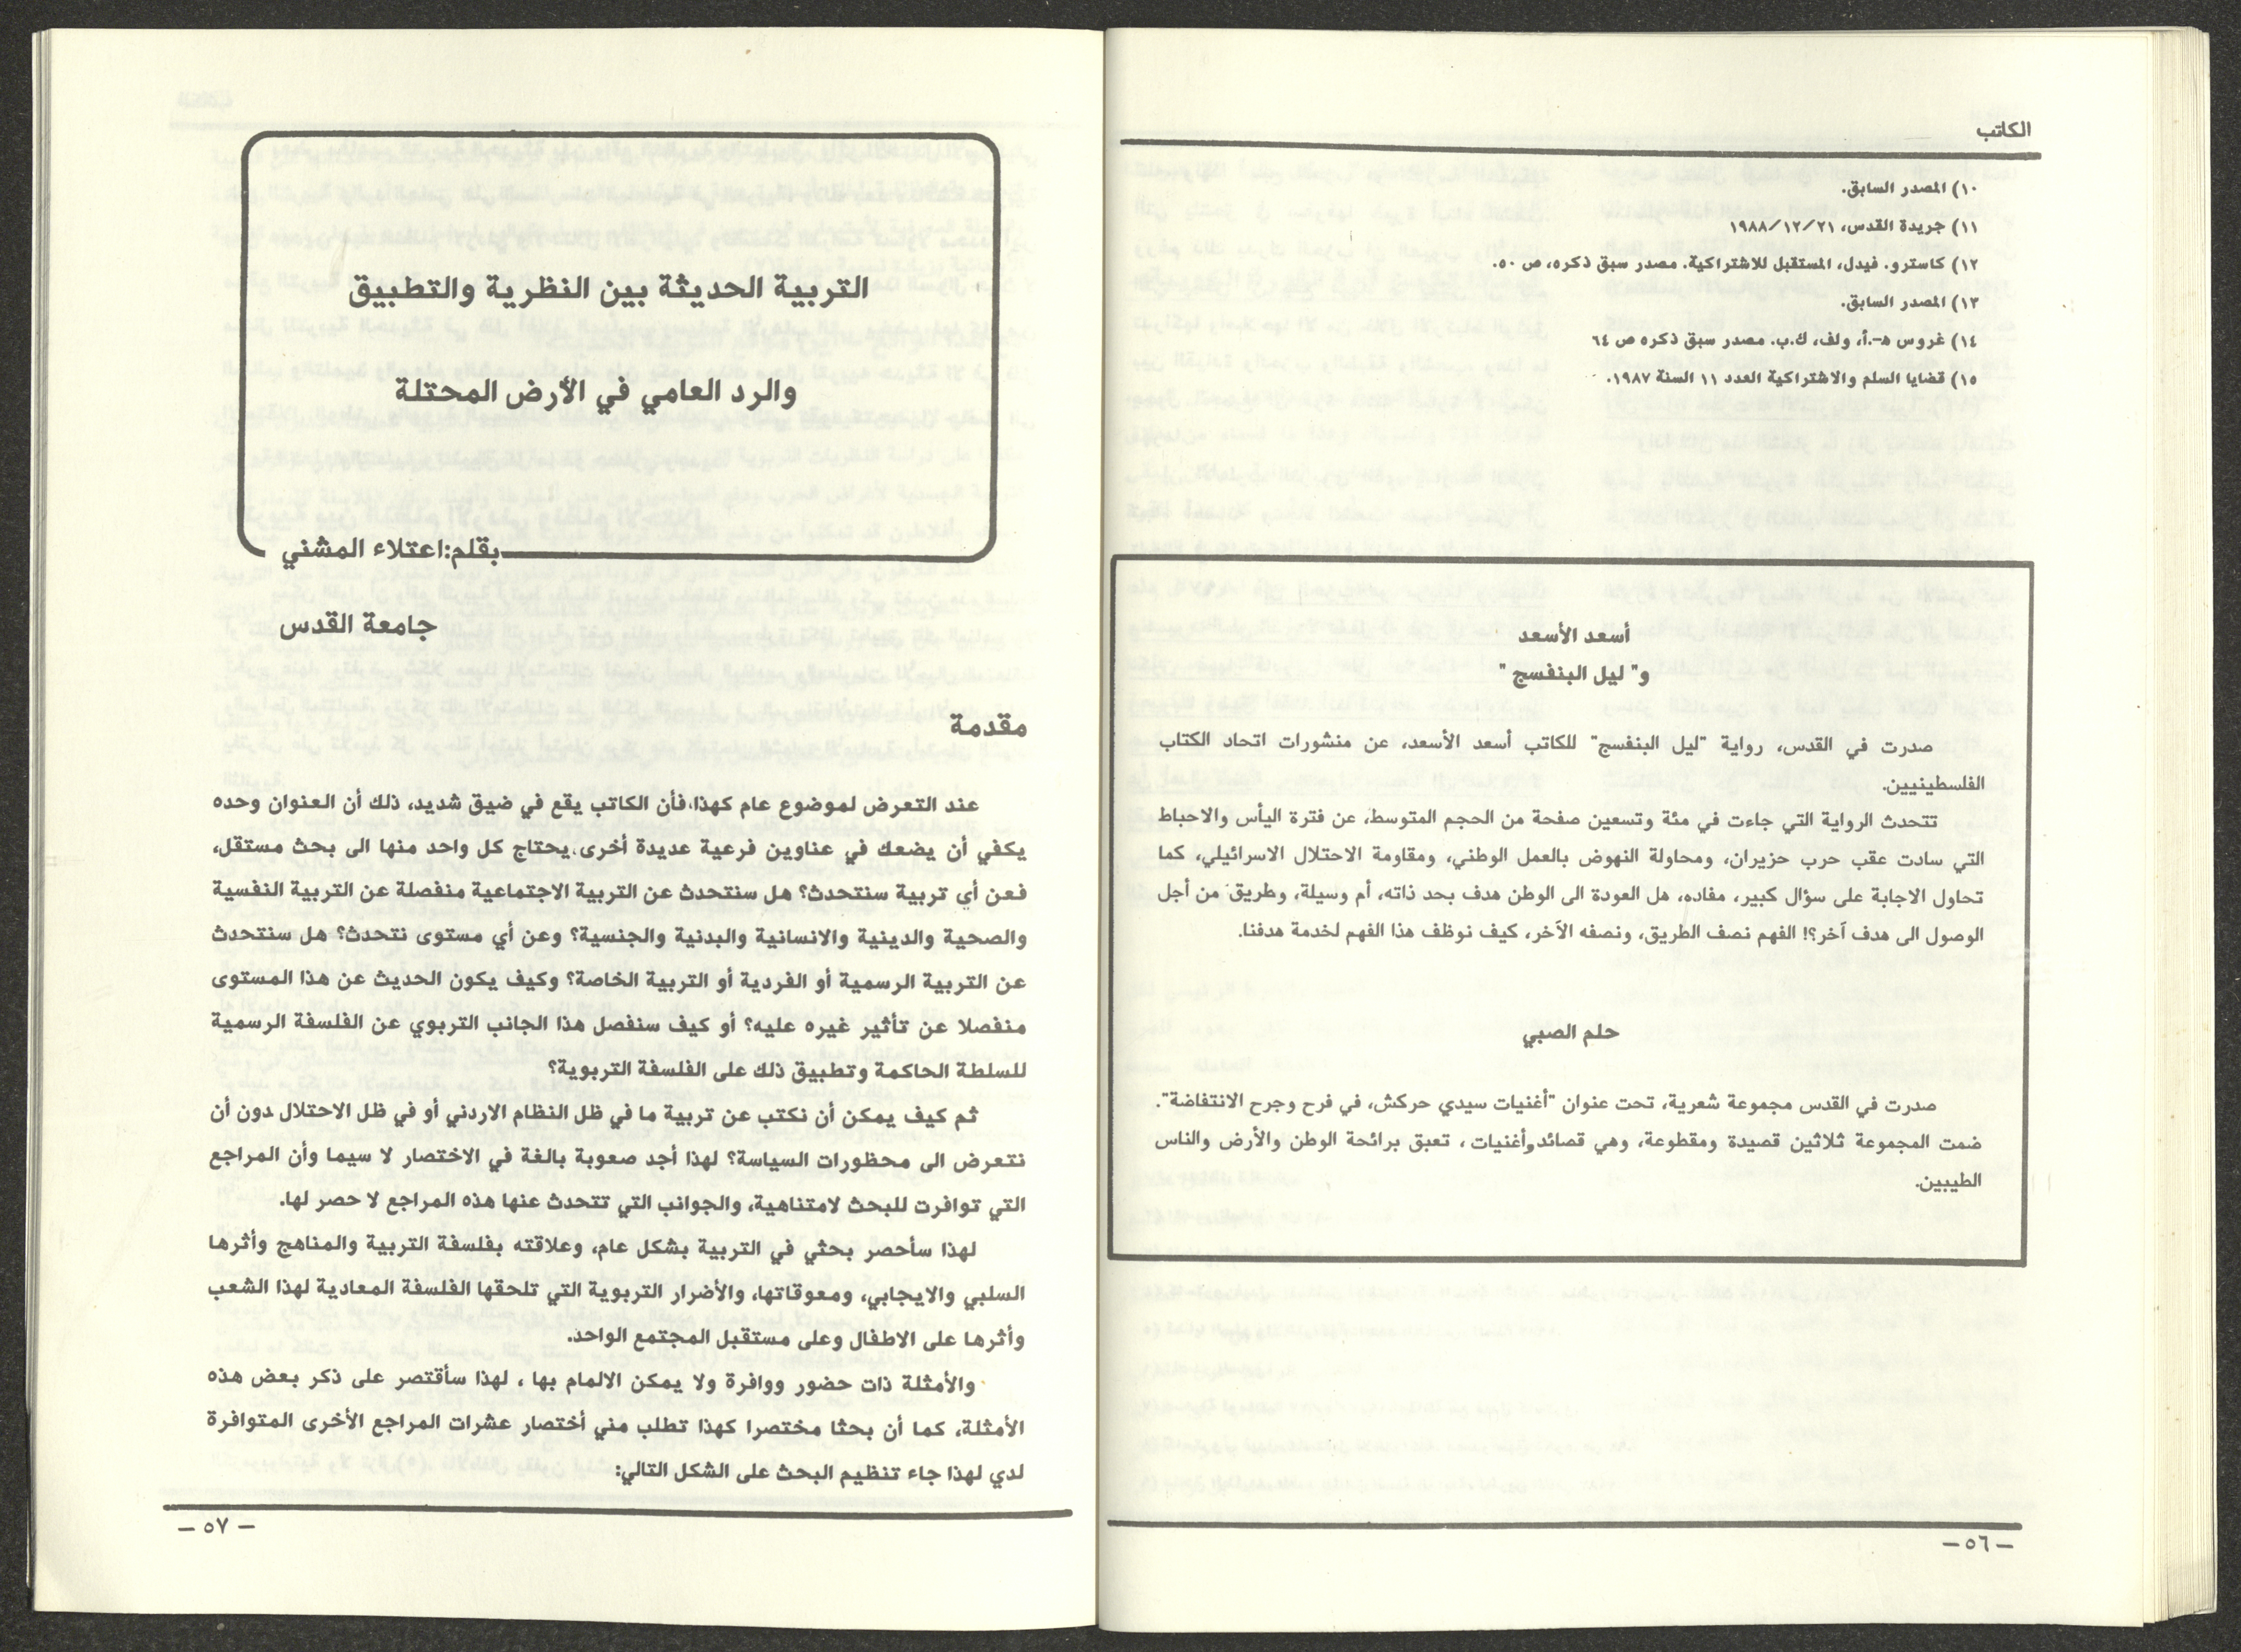 الكاتب
١٠) المصدر السابق.
١١) جريدة القدس، ١٩٨٨/١٢/٢١
١٢) كاسترو. فيدل، المستقبل للاشتراكية. مصدر سبق ذكره، ص ٥٠.
١٣) المصدر السابق.
١٤) غروس هـ.أ، ولف، ك.ب. مصدر سبق ذكره ص ٦٤
١٥) قضايا السلم والاشتراكية العدد ١١ السنة ١٩٨٧.
أسعد الأسعد
و" ليل البنفسج "
صدرت في القدس، رواية "ليل البنفسج" للكاتب أسعد الأسعد، عن منشورات اتحاد الكتاب
الفلسطينيين.
تتحدث الرواية التي جاءت في مئة وتسعين صفحة من الحجم المتوسط، عن فترة اليأس والاحباط
التي سادت عقب حرب حزيران، ومحاولة النهوض بالعمل الوطني، ومقاومة الاحتلال الاسرائيلي، كما
تحاول الاجابة على سؤال كبير، مفاده، هل العودة الى الوطن هدف بحد ذاته، أم وسيلة، وطريق من أجل
الوصول الى هدف آخر؟! الفهم نصف الطريق، ونصفه الآخر، كيف نوظف هذا الفهم لخدمة هدفنا.
حلم الصبي
صدرت في القدس مجموعة شعرية، تحت عنوان "أغنيات سيدي حركش، في فرح وجرح الانتفاضة".
ضمت المجموعة ثلاثين قصيدة ومقطوعة، وهي قصائد وأغنيات ، تعبق برائحة الوطن والأرض والناس
الطيبين.
— ٥٦ —
التربية الحديثة بين النظرية والتطبيق
والرد العامي في الأرض المحتلة
بقلم:اعتلاء المشني
جامعة القدس
مقدمة
عند التعرض لموضوع عام كهذا،فأن الكاتب يقع في ضيق شديد، ذلك أن العنوان وحده
يكفي أن يضعك في عناوين فرعية عديدة أخرى،يحتاج كل واحد منها الى بحث مستقل،
فعن أي تربية سنتحدث؟ هل سنتحدث عن التربية الاجتماعية منفصلة عن التربية النفسية
والصحية والدينية والانسانية والبدنية والجنسية؟ وعن أي مستوى نتحدث؟ هل سنتحدث
عن التربية الرسمية أو الفردية أو التربية الخاصة؟ وكيف يكون الحديث عن هذا المستوى
منفصلا عن تأثير غيره عليه؟ أو كيف سنفصل هذا الجانب التربوي عن الفلسفة الرسمية
للسلطة الحاكمة وتطبيق ذلك على الفلسفة التربوية؟
ثم كيف يمكن أن نكتب عن تربية ما في ظل النظام الاردني أو في ظل الاحتلال دون أن
نتعرض الى محظورات السياسة؟ لهذا أجد صعوبة بالغة في الاختصار لا سيما وأن المراجع
التي توافرت للبحث لامتناهية، والجوانب التي تتحدث عنها هذه المراجع لا حصر لها.
لهذا سأحصر بحثي في التربية بشكل عام، وعلاقته بفلسفة التربية والمناهج وأثرها
السلبي والايجابي، ومعوقاتها، والأضرار التربوية التي تلحقها الفلسفة المعادية لهذا الشعب
وأثرها على الاطفال وعلى مستقبل المجتمع الواحد.
والأمثلة ذات حضور ووافرة ولا يمكن الالمام بها ، لهذا سأقتصر على ذكر بعض هذه
الأمثلة، كما أن بحثا مختصرا كهذا تطلب مني أختصار عشرات المراجع الأخرى المتوافرة
لدي لهذا جاء تنظيم البحث على الشكل التالي:
— ٥٧ —